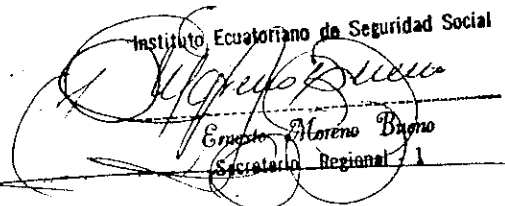 Instituto Ecuatoriano de Seguridad Social
Ernesto Moreno Bueno
Secretario Regional 1